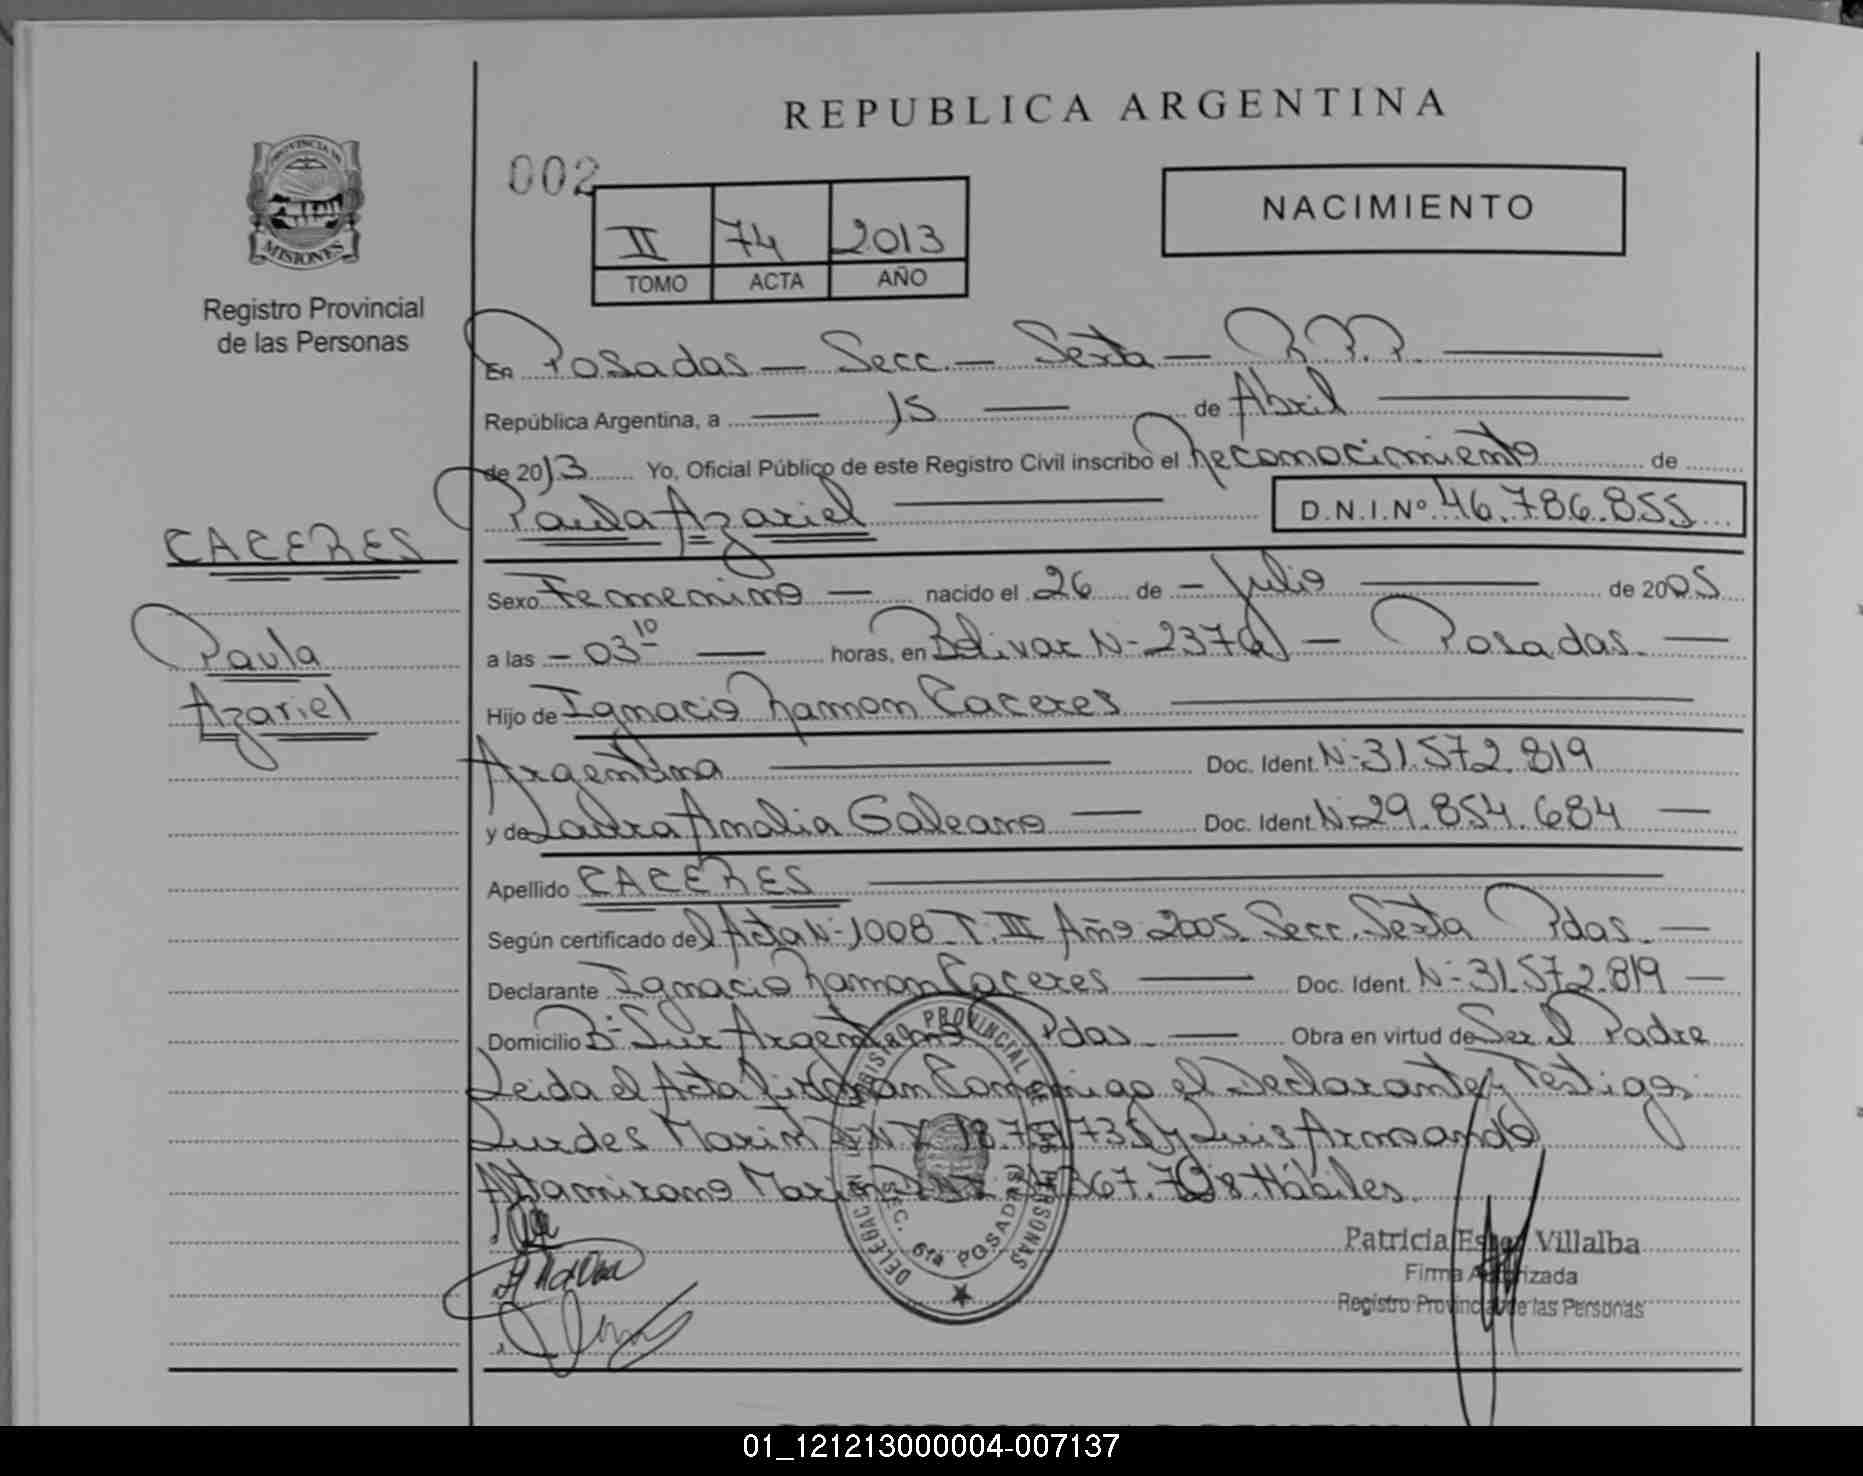 REPUBLICA ARGENTINA
002
NACIMIENTO
II 74 2013
TOMO ACTA AÑO
PROVINCIA DE
MISIONES
Registro Provincial
de las Personas
CACERES
Paula
Azariel
En Posadas — Secc. — Sexta — R.P.P. —
República Argentina, a — 15 — de Abril —
de 2013 Yo, Oficial Público de este Registro Civil inscribo el Reconocimiento de
Paula Azariel — D.N.I.Nº 46.786.855
Sexo Femenino — nacido el 26 de — Julio — de 2005
a las — 03 10 — horas, en Bolivar N- 2376) — Posadas. —
Hijo de Ignacio Ramon Caceres —
Argentina — Doc. Ident. N- 31.572.819
y de Laura Amalia Galeano — Doc. Ident. N- 29.854.684 —
Apellido CACERES —
Según certificado del Acta N- 1008 T. III Año 2005. Secc. Sexta Pdas. —
Declarante Ignacio Ramon Caceres — Doc. Ident. N- 31.572.819 —
Domicilio Bº Sur Argentino Pdas. — Obra en virtud de Ser el Padre
Leida el Acta firman Conmigo el Declarante y Testigos:
Lurdes Marin D.N.I. y Luis Armando
Altamirano Marin D.N.I. Hábiles.
REGISTRO PROVINCIAL DE LAS PERSONAS
SEC. 6ta POSADAS
Patricia Ester Villalba
Firma Autorizada
Registro Provincial de las Personas
01_121213000004-007137